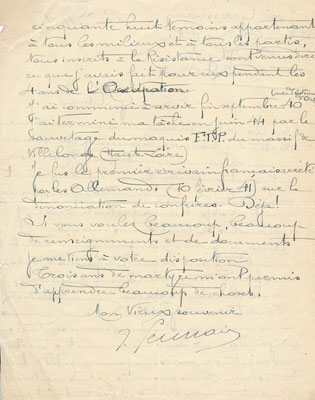 cinquante huit témoins appartenant
à tous les milieux et à tous les partis,
tous inscrits à la Résistance sont venus dire
ce que j'avais fait pour eux pendant les
4 ans de l'Occupation
J'ai commencé à servir fin septembre 40
J'ai terminé ma tâche en juin 44 par le
sauvetage du maquis F.T.P. du massif de
Villelonge (Haute Loire)
Je fus le premier écrivain français arrêté
par les Allemands (10 février 41) sur la
dénonciation de confrères. Déjà!
Si vous voulez beaucoup, beaucoup
de renseignements et de documents
je me tiens à votre disposition
Trois ans de martyre m'ont permis
d'apprendre beaucoup de choses.
Mon vieux souvenir